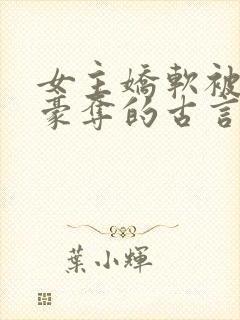 女主嬌軟被
豪奪的古言
葉小輝